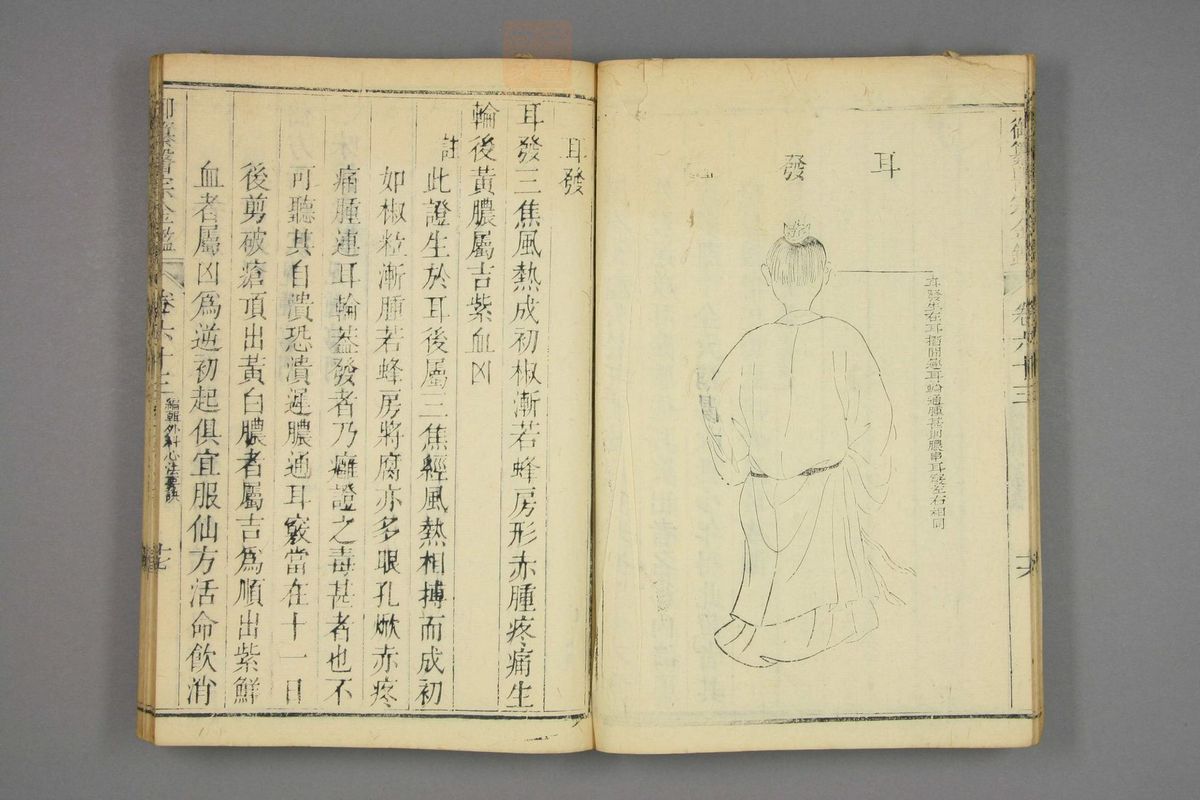 御纂醫宗金鑑
卷六十三
耳發圖
耳發生在耳摺間連耳輪通腫甚則膿串耳竅左右相同
耳發
耳發三焦風熱成初椒漸若蜂房形赤腫疼痛生
輪後黃膿屬吉紫血凶
註此證生於耳後屬三焦經風熱相搏而成初
如椒粒漸腫若蜂房將腐亦多眼孔焮赤疼
痛腫連耳輪葢發者乃癰證之毒甚者也不
可聽其自潰恐潰遲膿通耳竅當在十一日
後剪破瘡頂出黃白膿者屬吉爲順出紫鮮
血者屬凶爲逆初起俱宜服仙方活命飲消
御纂醫宗金鑑
卷六十三
編輯外科心法要訣
十七